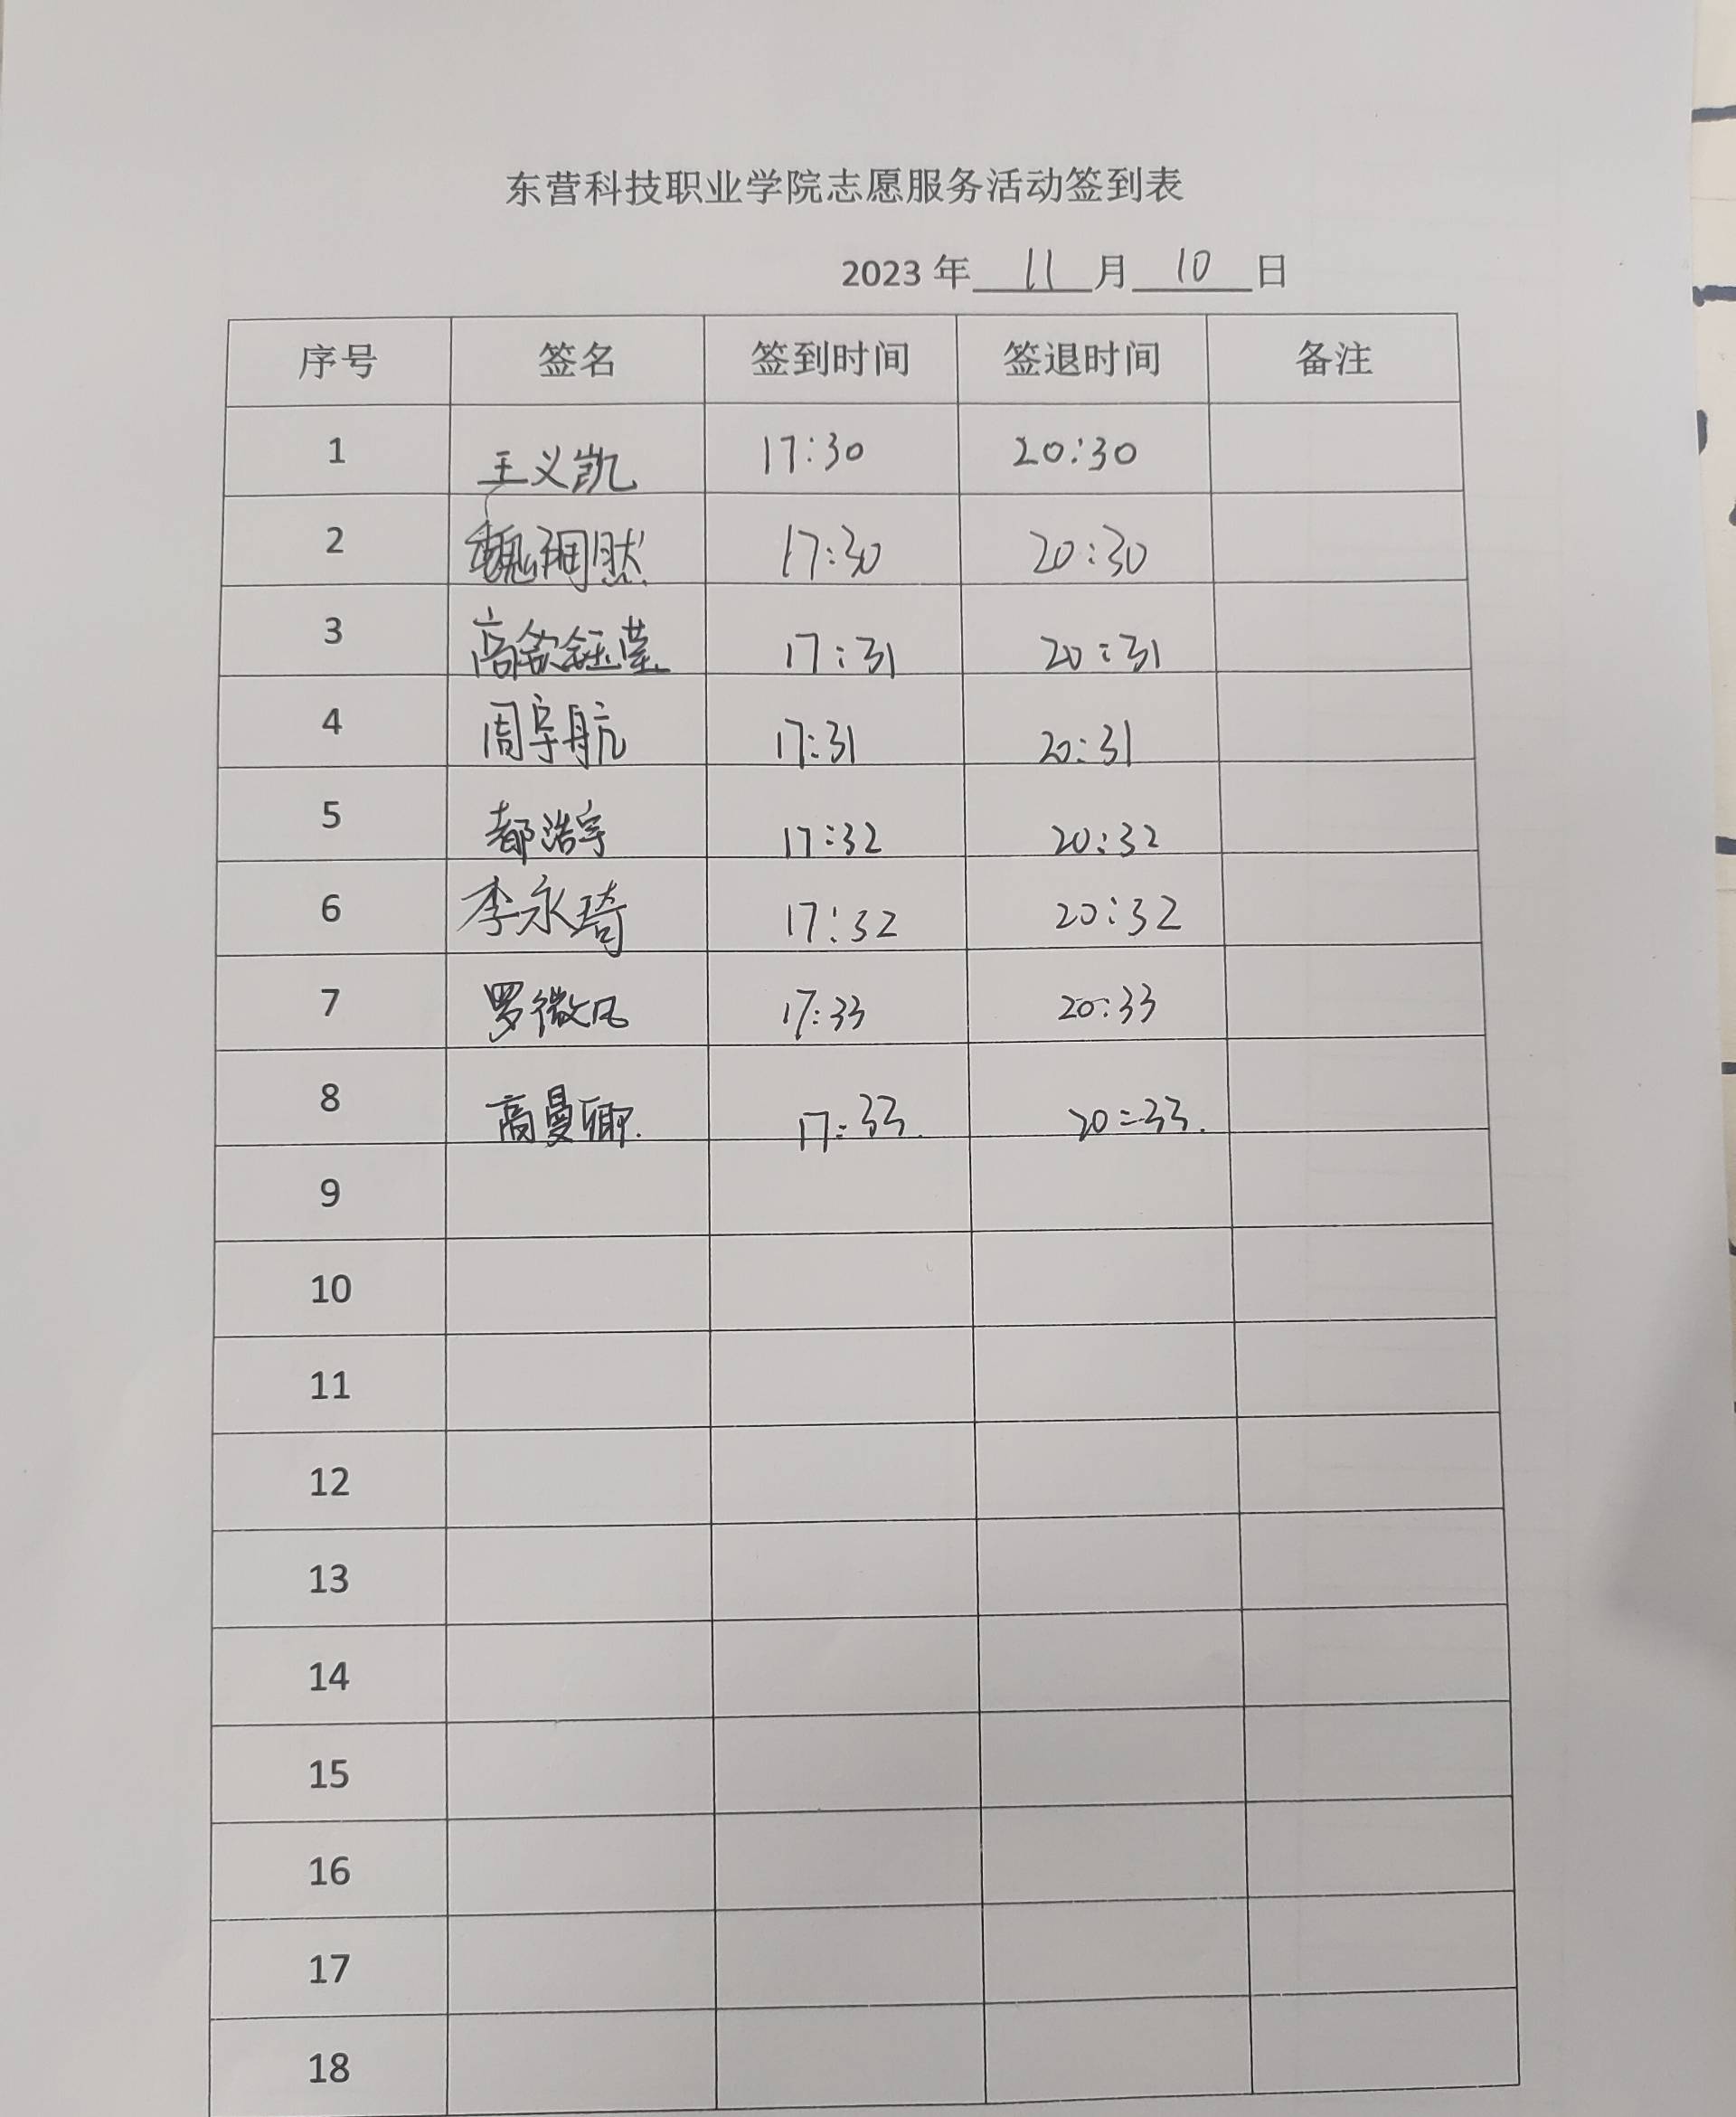 东营科技职业学院志愿服务活动签到表
2023 年 11 月 10 日
序号 签名 签到时间 签退时间 备注
1 王义凯 17:30 20:30
2 魏润然 17:30 20:30
3 高钦钰莹 17:31 20:31
4 周宇航 17:31 20:31
5 都浩宇 17:32 20:32
6 李永琦 17:32 20:32
7 罗微凡 17:33 20:33
8 高曼卿. 17:33. 20:33.
9
10
11
12
13
14
15
16
17
18